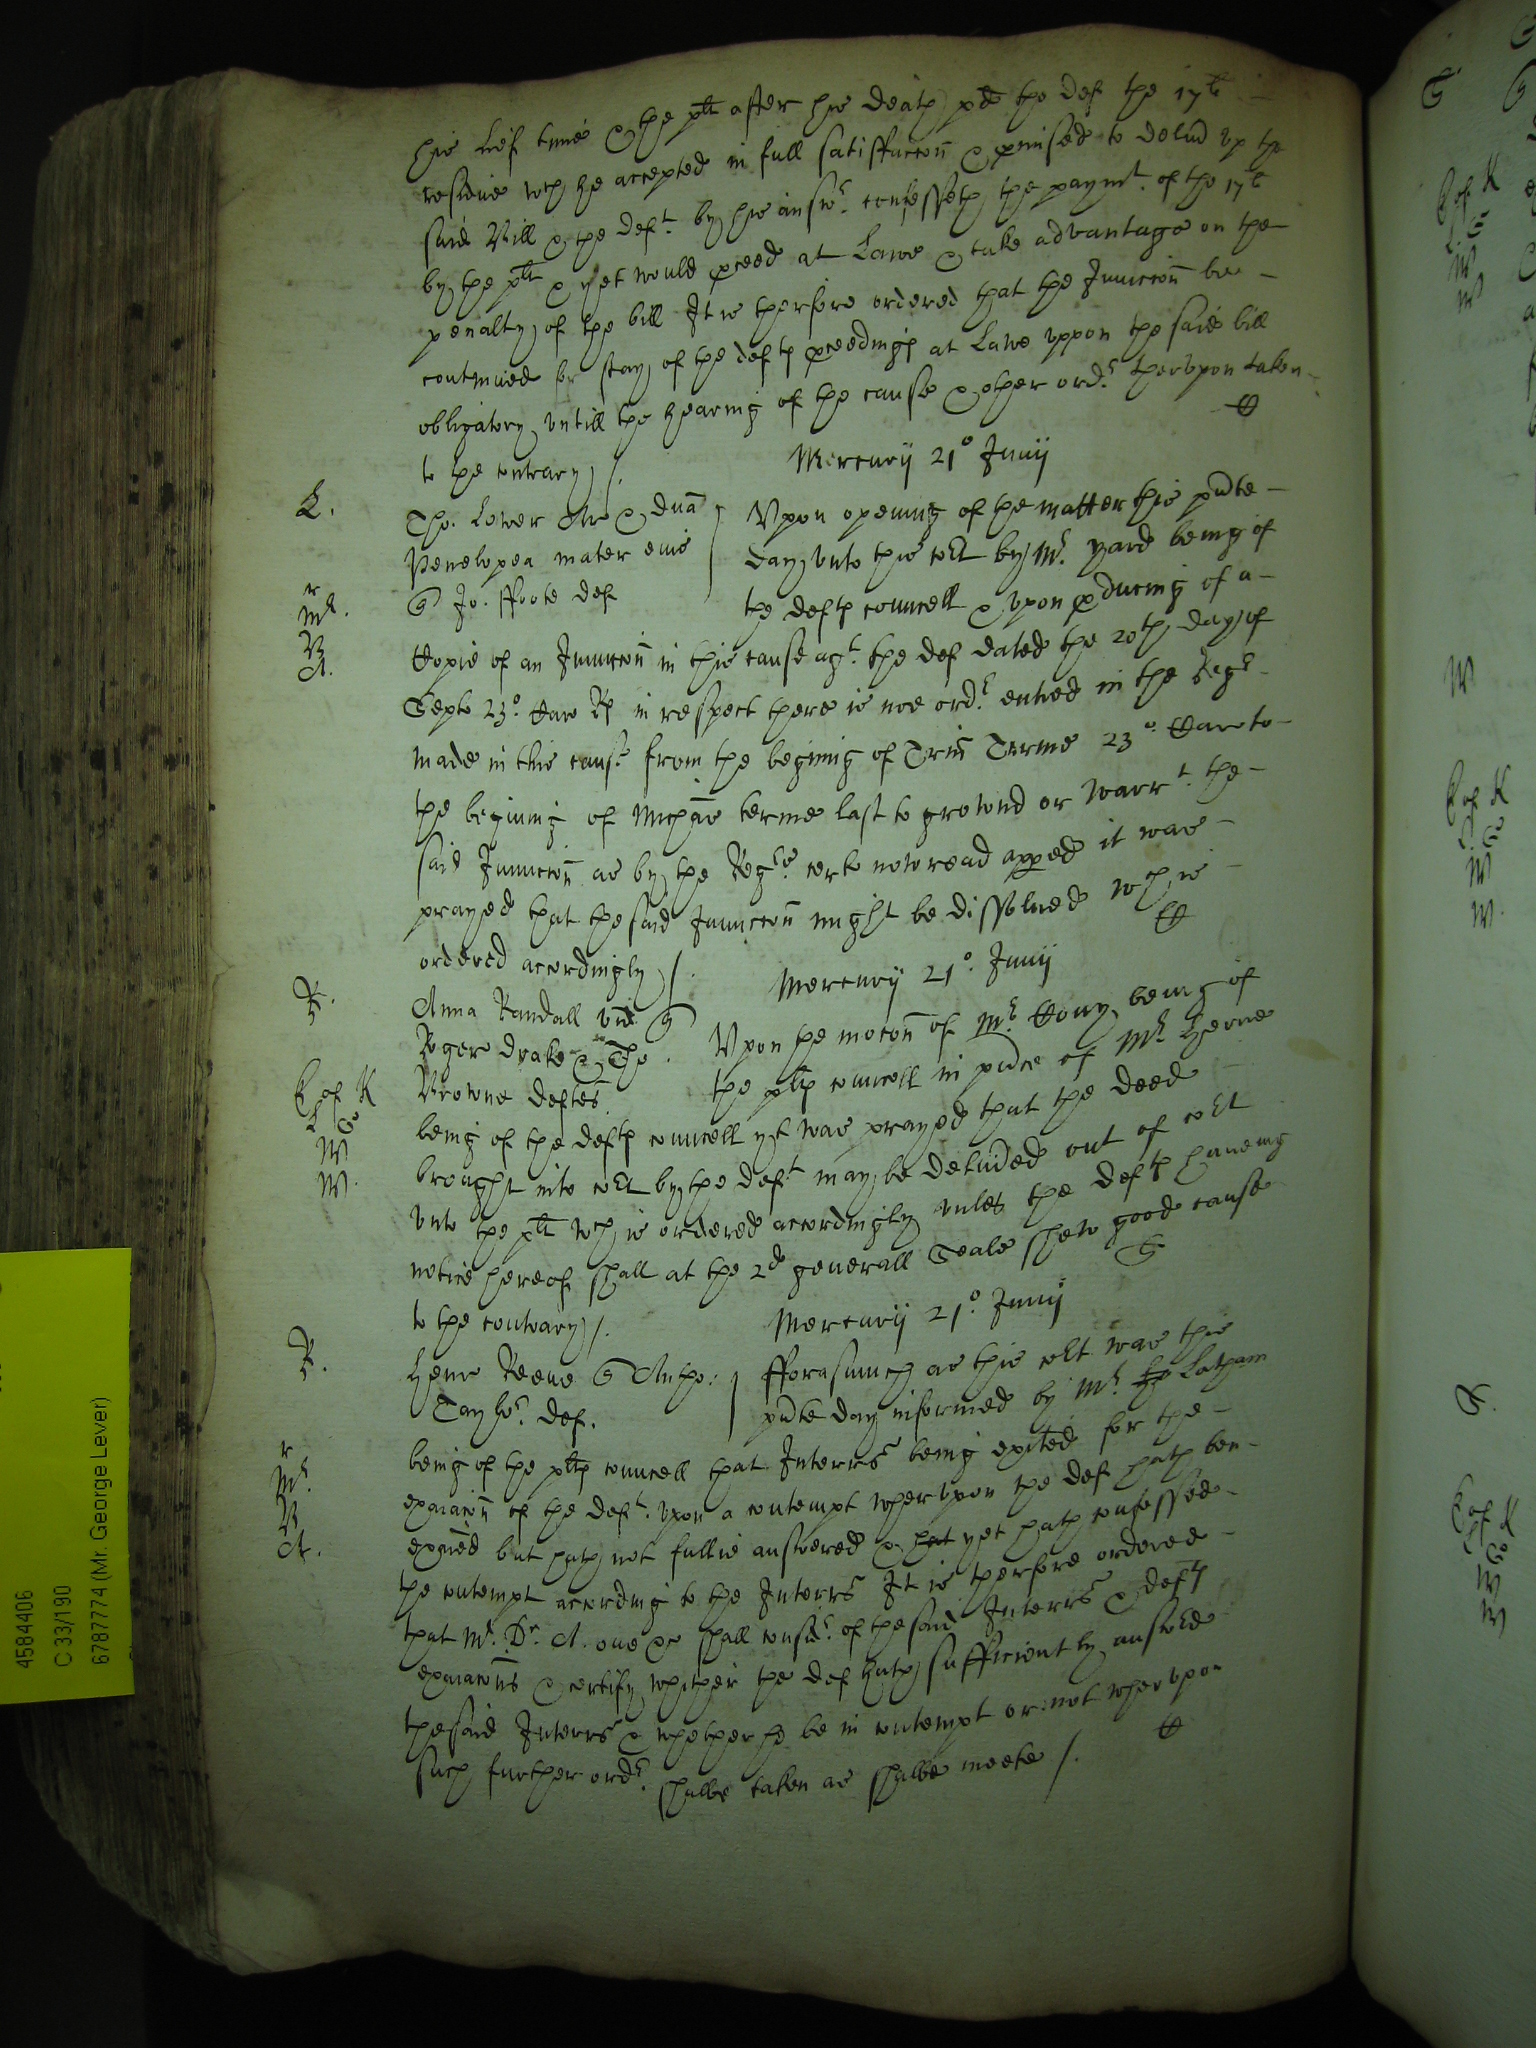 his lief time & the plt after his death pd the def the 17li
residue wch he accepted in full satisffaccon & pmised to deliud vp the
said Bill & the deft. by his answr. confesseth the paymt. of the 17li
by the plt & yet would pceed at Lawe & take advantage on the
penalty of the bill It is therfore ordered that the Iniuccon be
contynued for stay of the defts pceedings at Lawe vppon the said bill
obligatory vntill the hearing of the cause & other ordr. thervpon taken
to the contrary /.
Mercurij 21o Junij
L.
Tho. Lower & dna
Penelopea mater eius
Jo. ffoote def
Vpon opening of the matter this pnte
day vnto this cort by Mr. yard being of
the defts councell & vpon pducing of a
mr.
R
A.
Copie of an Iniuccon in this cause agt. the def dated the 20th day of
Septe 23o. Caro Rs in respect there is noe ordr. entred in the Regr
made in this cause from the begining of Trin Terme 23o. Caro to
the begining of Michas terme last to grownd or warrt. the
said Iniuccon as by the Regrs. certe now read apped it was
prayed that the said Iniuccon might be dissolued wch is
ordered accordingly /.
Mercurij 21o. Junij
R.
Anna Randall vid
Roger drake & Tho.
Browne deftes.
Vpon the mocon of Mr. Hony being of
the plts councell in pnce of Mr. Herne
E of K
L G
W
W.
being of the defts councell yt was prayed that the deed
brought into cort by the deft. may be deliuded out of cort
vnto the plt wch is ordered accordingly vnles the defts haueing
notice hereof shall at the 2d generall Seale shew good cause
to the contrary /.
Mercurij 21o. Junij
R.
Henr Reeue Antho:
Taylor. def.
fforasmuch as this cort was this
pnte day informed by Mr. Latham
mr.
R
A.
being of the plts councell that Interrs being exited for the
exaiacon of the deft. vpon a contempt whervpon the def hath ben
exaied but hath not fullie answered & hat yet hath confessed
the contempt according to the Interrs It is therfore ordered
that Mr. Dr. A. one &c shall consider. of the said Interrs & defts
exaiacons & certify whither the def hath sufficiently answred
the said Interrs & whether he be in contempt or not whervpon
such further ordr. shalbe taken as shalbe meete /.
4584406
C 33/190
6787774 (Mr. George Lever)